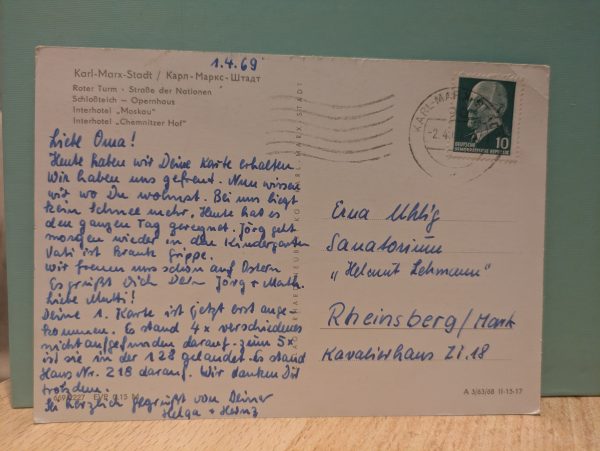 1.4.69
Karl-Marx-Stadt / Карл-Маркс-Штадт
Roter Turm · Straße der Nationen
Schloßteich — Opernhaus
Interhotel „Moskau“
Interhotel „Chemnitzer Hof“
Liebe Oma!
Heute haben wir Deine Karte erhalten.
Wir haben uns gefreut. Nun wissen
wir wo Du wohnst. Bei uns liegt
kein Schnee mehr. Heute hat es
den ganzen Tag geregnet. Jörg geht
morgen wieder in den Kindergarten
Vati ist krank Grippe.
wir freuen uns schon auf Ostern
Es grüßt Dich Dein Jörg + Math.
Liebe Mutti!
Deine 1. Karte ist jetzt erst ange-
kommen. Es stand 4x verschiedenes
nicht aufgefunden darauf. zum 5x
ist sie in der 128 gelandet. Es stand
Haus Nr. 218 darauf. Wir danken Dir
trotzdem.
Sei herzlich gegrüßt von Deiner
Helga + Heinz
KARL-MARX-
-2.4.
10
DEUTSCHE
DEMOKRATISCHE REPUBLIK
Erna Uhlig
Sanatorium
„Helmut Lehmann“
Rheinsberg/Mark
Kavalierhaus Zi. 18
A 3/63/68 11-15-17